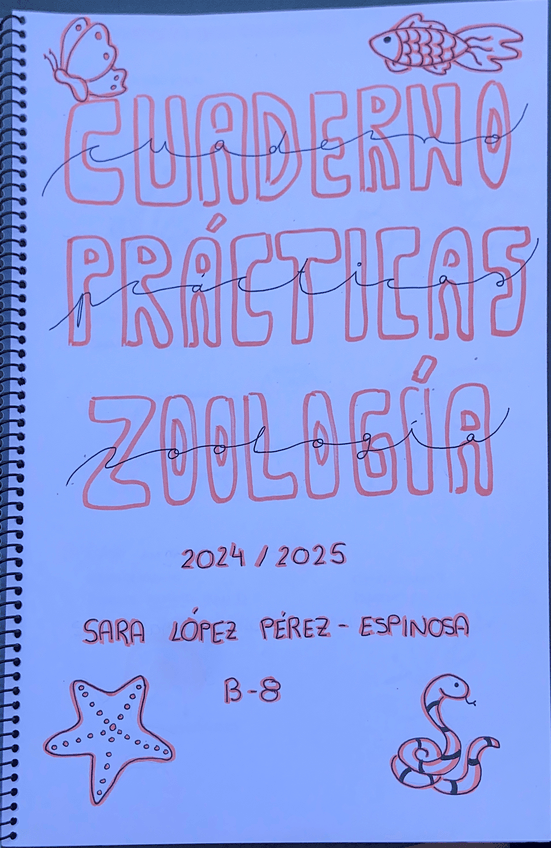 CUADERNO
cuaderno
PRÁCTICAS
prácticas
ZOOLOGÍA
zoología
2024/2025
SARA LÓPEZ PÉREZ-ESPINOSA
B-8